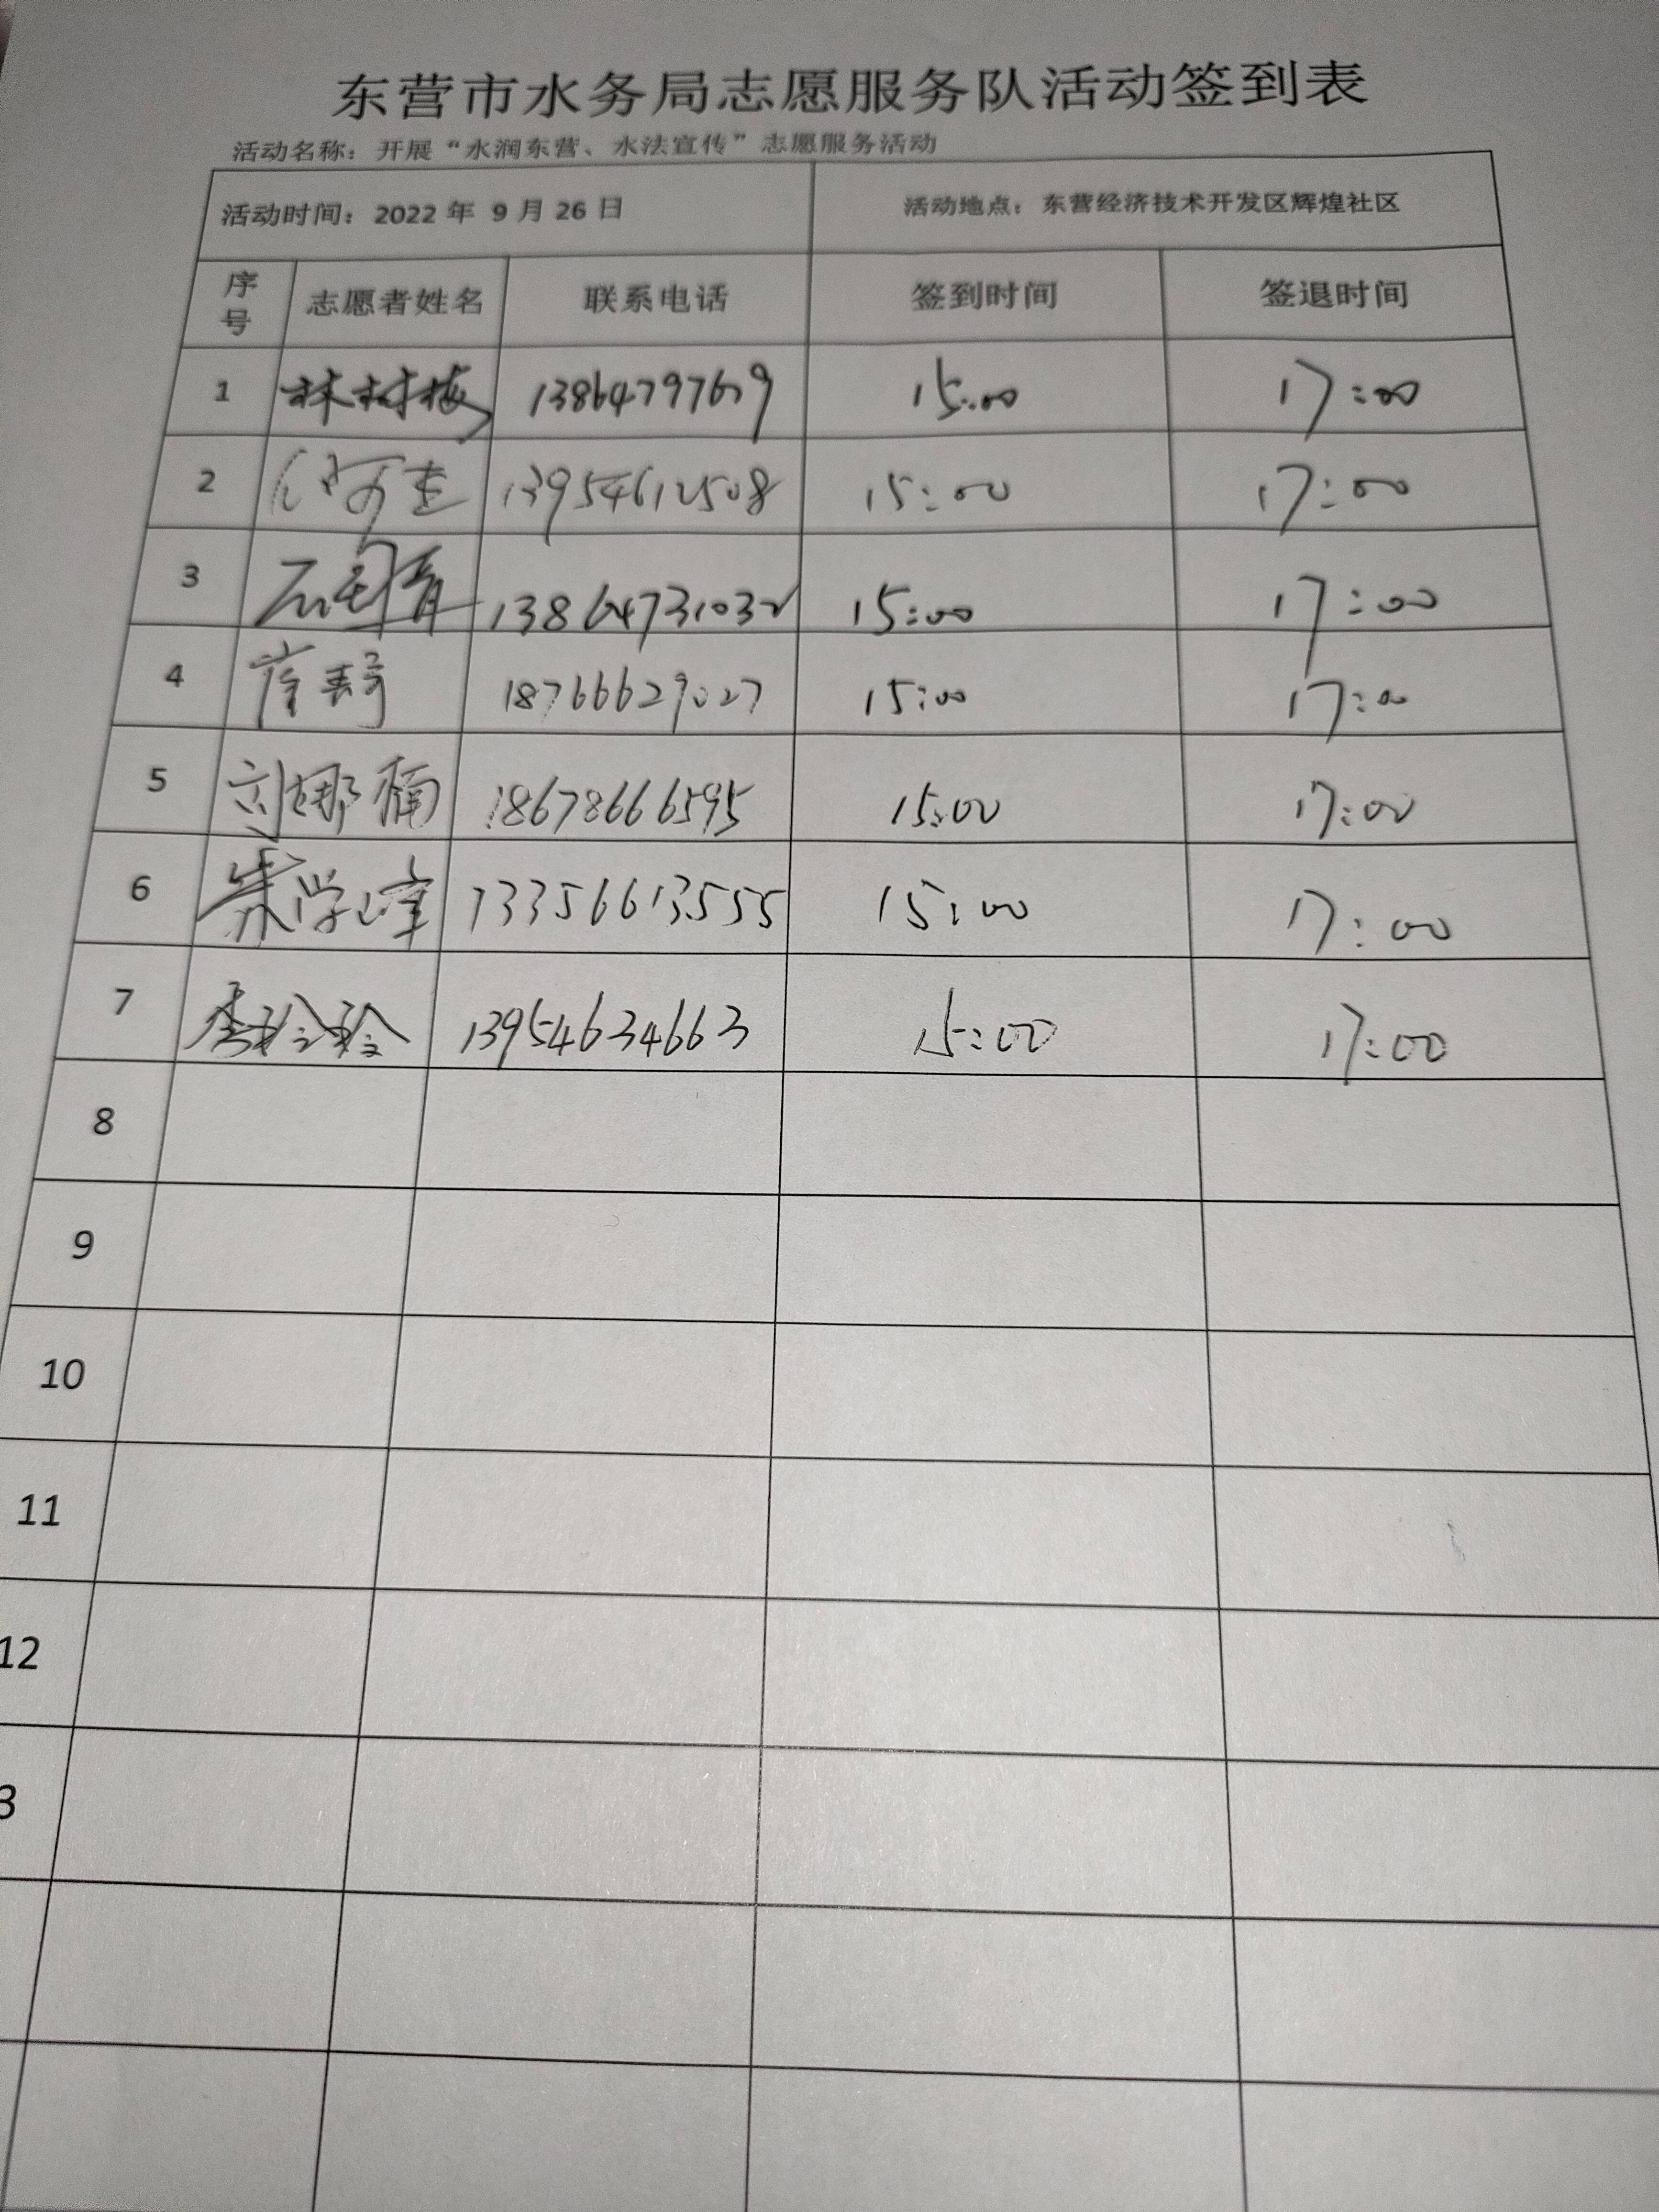 东营市水务局志愿服务队活动签到表
活动名称：开展“水润东营、水法宣传”志愿服务活动
活动时间：2022 年 9 月 26 日 活动地点：东营经济技术开发区辉煌社区
序号 志愿者姓名 联系电话 签到时间 签退时间
1 林树梅 13864797679 15:00 17:00
2 13954612508 15:00 17:00
3 13864731032 15:00 17:00
4 崔琦 18766629027 15:00 17:00
5 刘娜楠 18678666595 15:00 17:00
6 綦学峰 13356613555 15:00 17:00
7 李玲玲 13954634663 15:00 17:00
8
9
10
11
12
3